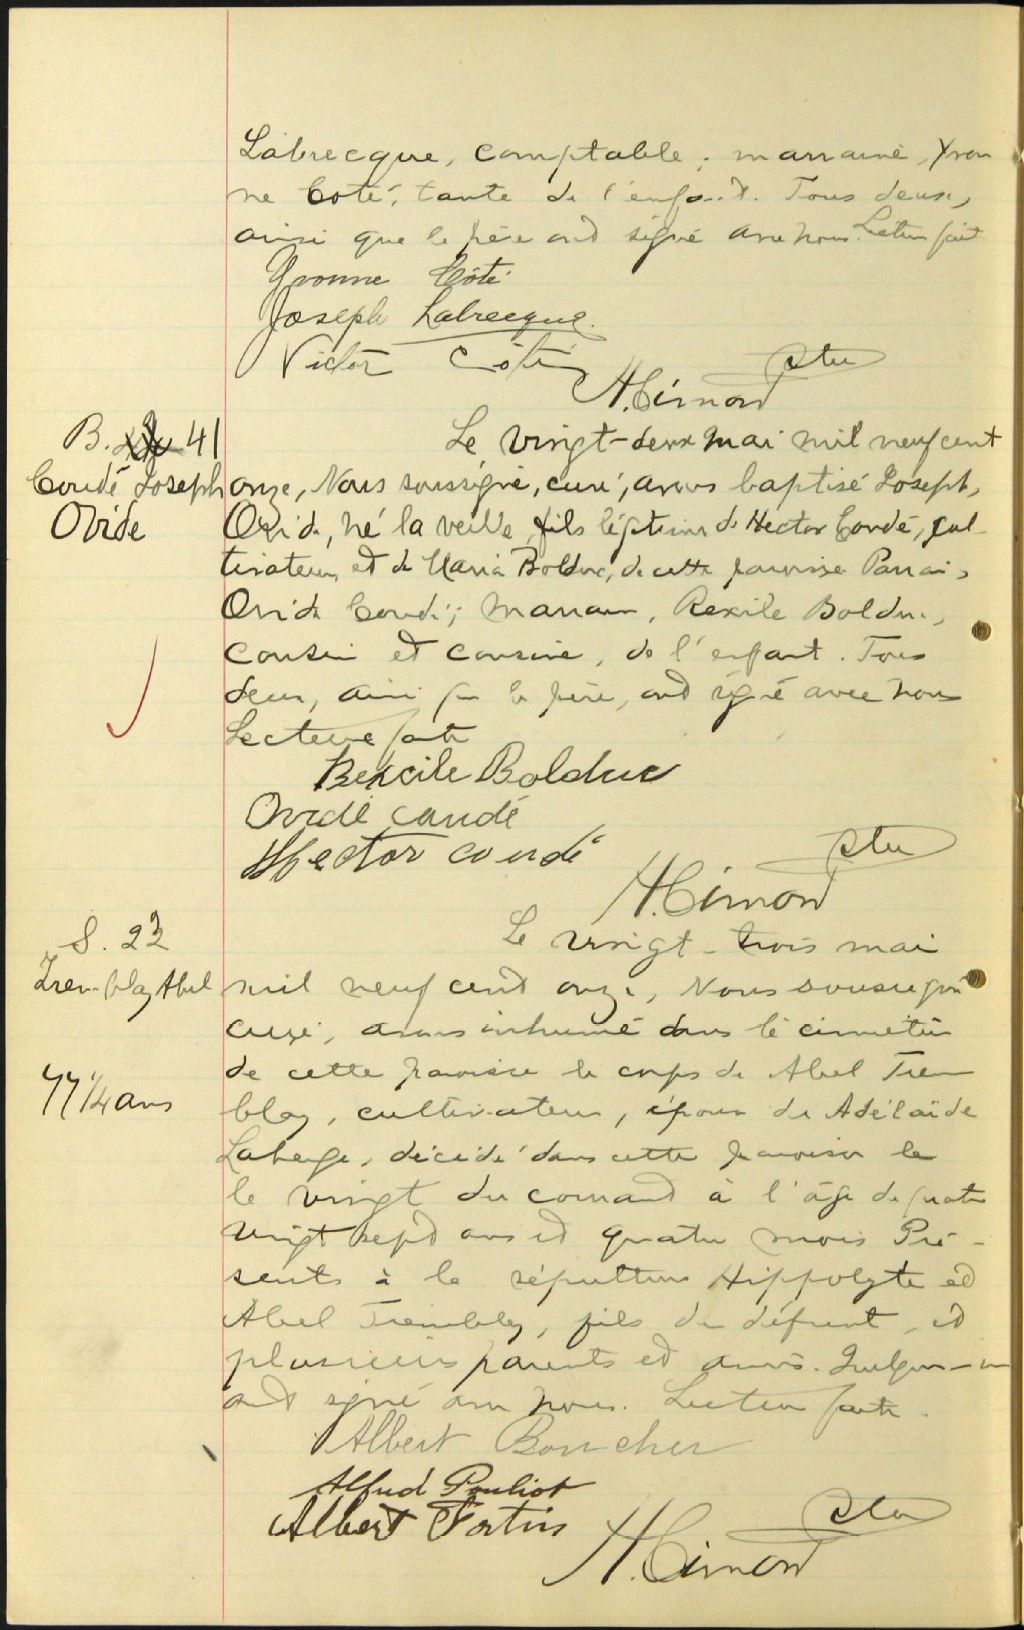 Labrecque, comptable; marraine, Yvon
ne Coté, tante de l'enfant. Tous deux,
ainsi que le père ont signé avec nous. Lecture faite
Yvonne Côté
Joseph Labrecque
Victor Côté
H. Cimon Ptre
B. 41
Coudé Joseph
Ovide
Le vingt-deux mai mil neuf cent
onze, Nous soussigné, curé, avons baptisé Joseph,
Ovide, né la veille, fils légitime de Hector Coudé, cul-
tivateur, et de Maria Bolduc, de cette paroisse. Parrain,
Ovide Coudé; marraine, Rexile Bolduc,
cousin et cousine, de l'enfant. Tous
deux, ainsi que le père, ont signé avec nous
Lecture faite
Rexcile Bolduc
Ovide Coudé
Hector Coudé
H. Cimon Ptre
S. 22
Tremblay Abel
77 1/4 ans
Le vingt-trois mai
mil neuf cent onze, Nous soussigné
curé, avons inhumé dans le cimetière
de cette paroisse le corps de Abel Trem
blay, cultivateur, époux de Adélaïde
Laberge, décédé dans cette paroisse le
le vingt du courant à l'âge de quatre
vingt sept ans et quatre mois Pré-
sents à la sépulture Hippolyte et
Abel Tremblay, fils du défunt, et
plusieurs parents et amis. Quelques-uns
ont signé avec nous. Lecture faite.
Albert Boucher
Alfred Pouliot
Albert Fortin
H. Cimon Ptre